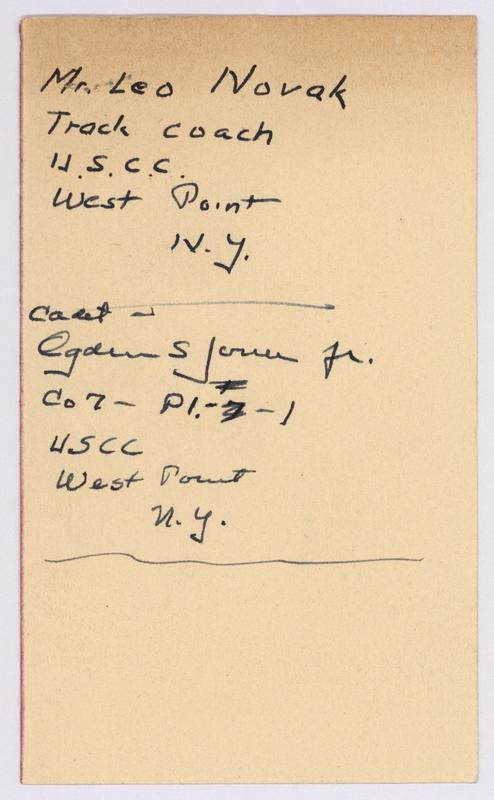 Mr. Leo Novak
Track coach
U.S.C.C.
West Point
N.Y.
Cadet -
Ogden S Jones Jr.
Co 7 - Pl. - - 1
USCC
West Point
N.Y.